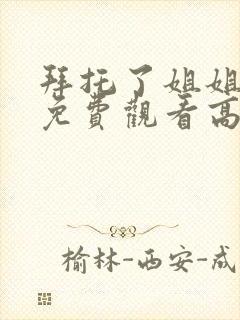 拜托了姐姐
免费觀看高
榆林-西安-成